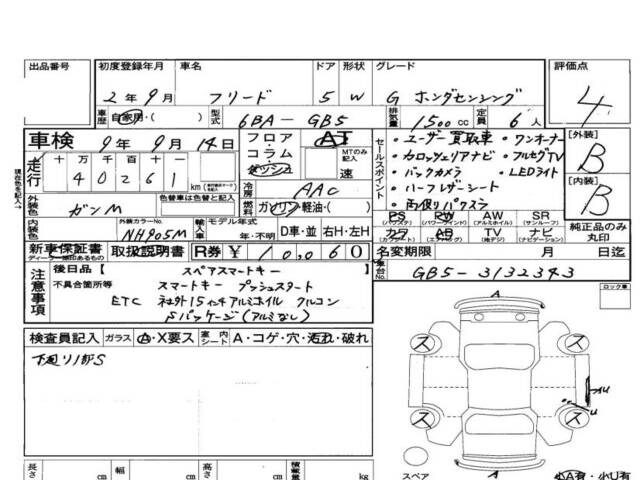 出品番号 初度登録年月 車名 ドア 形状 グレード 評価点
2年9月 フリード 5 W G ホンダセンシング 4
車歴 自家用・( ) 型式 6BA-GB5 排気量 1500cc 定員 6人
車検 9年9月14日 フロア・コラム・ダッシュ AT MTのみ記入 速
走行 十万千百十一 40261 km
セールスポイント
・ユーザー買取車 ・ワンオーナー
・カロッツェリアナビ ・フルセグTV
・バックカメラ ・LEDライト
・ハーフレザーシート
・両側パワスラ
[外装] B
[内装] B
現在色を記入→
冷房 AAC
外装色 ガンM 色替車は色替と記入 燃料 ガソリン・軽油・( )
内装色 外装カラーNo. NH905M 輸入車 モデル年式 年・不明 D車・並 右H・左H
PS (パワステ) PW (パワーウィンド) AW (アルミホイル) SR (サンルーフ)
カワ (カワシート) AB (エアバッグ) TV (地デジ) ナビ (ナビゲーション)
純正品のみ丸印
新車保証書 ディーラー捺印あるもの 取扱説明書 R券 ¥10,060 名変期限 月 日迄
車台No. GB5-3132343
注意事項
後日品【 スペアスマートキー
不具合箇所等 スマートキー プッシュスタート
ETC 15インチアルミホイル クルコン
Sパッケージ(アルミなし)
ロック車
検査員記入 ガラス A・X要ス 室内シート A・コゲ・穴・汚れ・破れ
下廻り1部S
A
ス ス
ス ス
U
A
スペア
小A有・小U有
長さ cm 幅 cm 高さ cm 積載量 kg